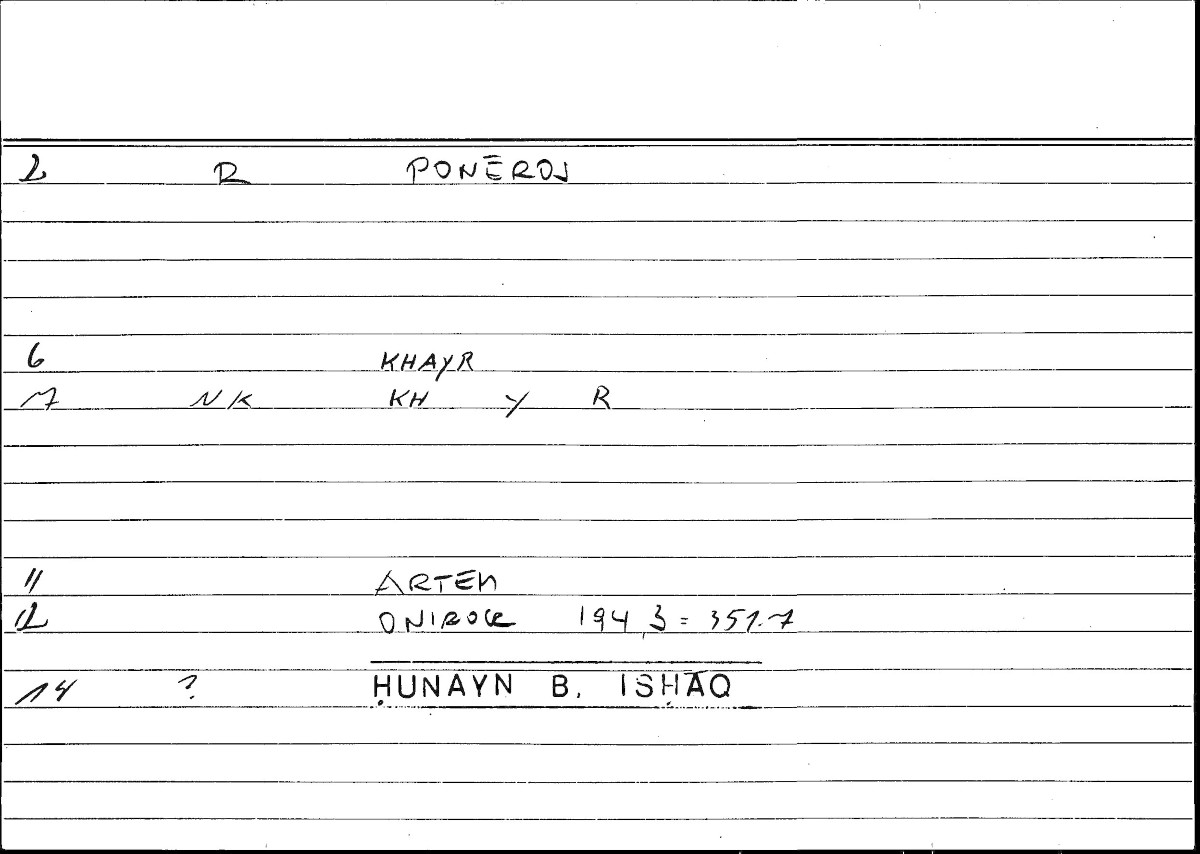 2 R PONĒROS
6 KHAYR
7 NK KH Y R
11 ARTEM
12 ONIROCR 194,3 = 351.7
14 ? ḤUNAYN B. ISḤĀQ